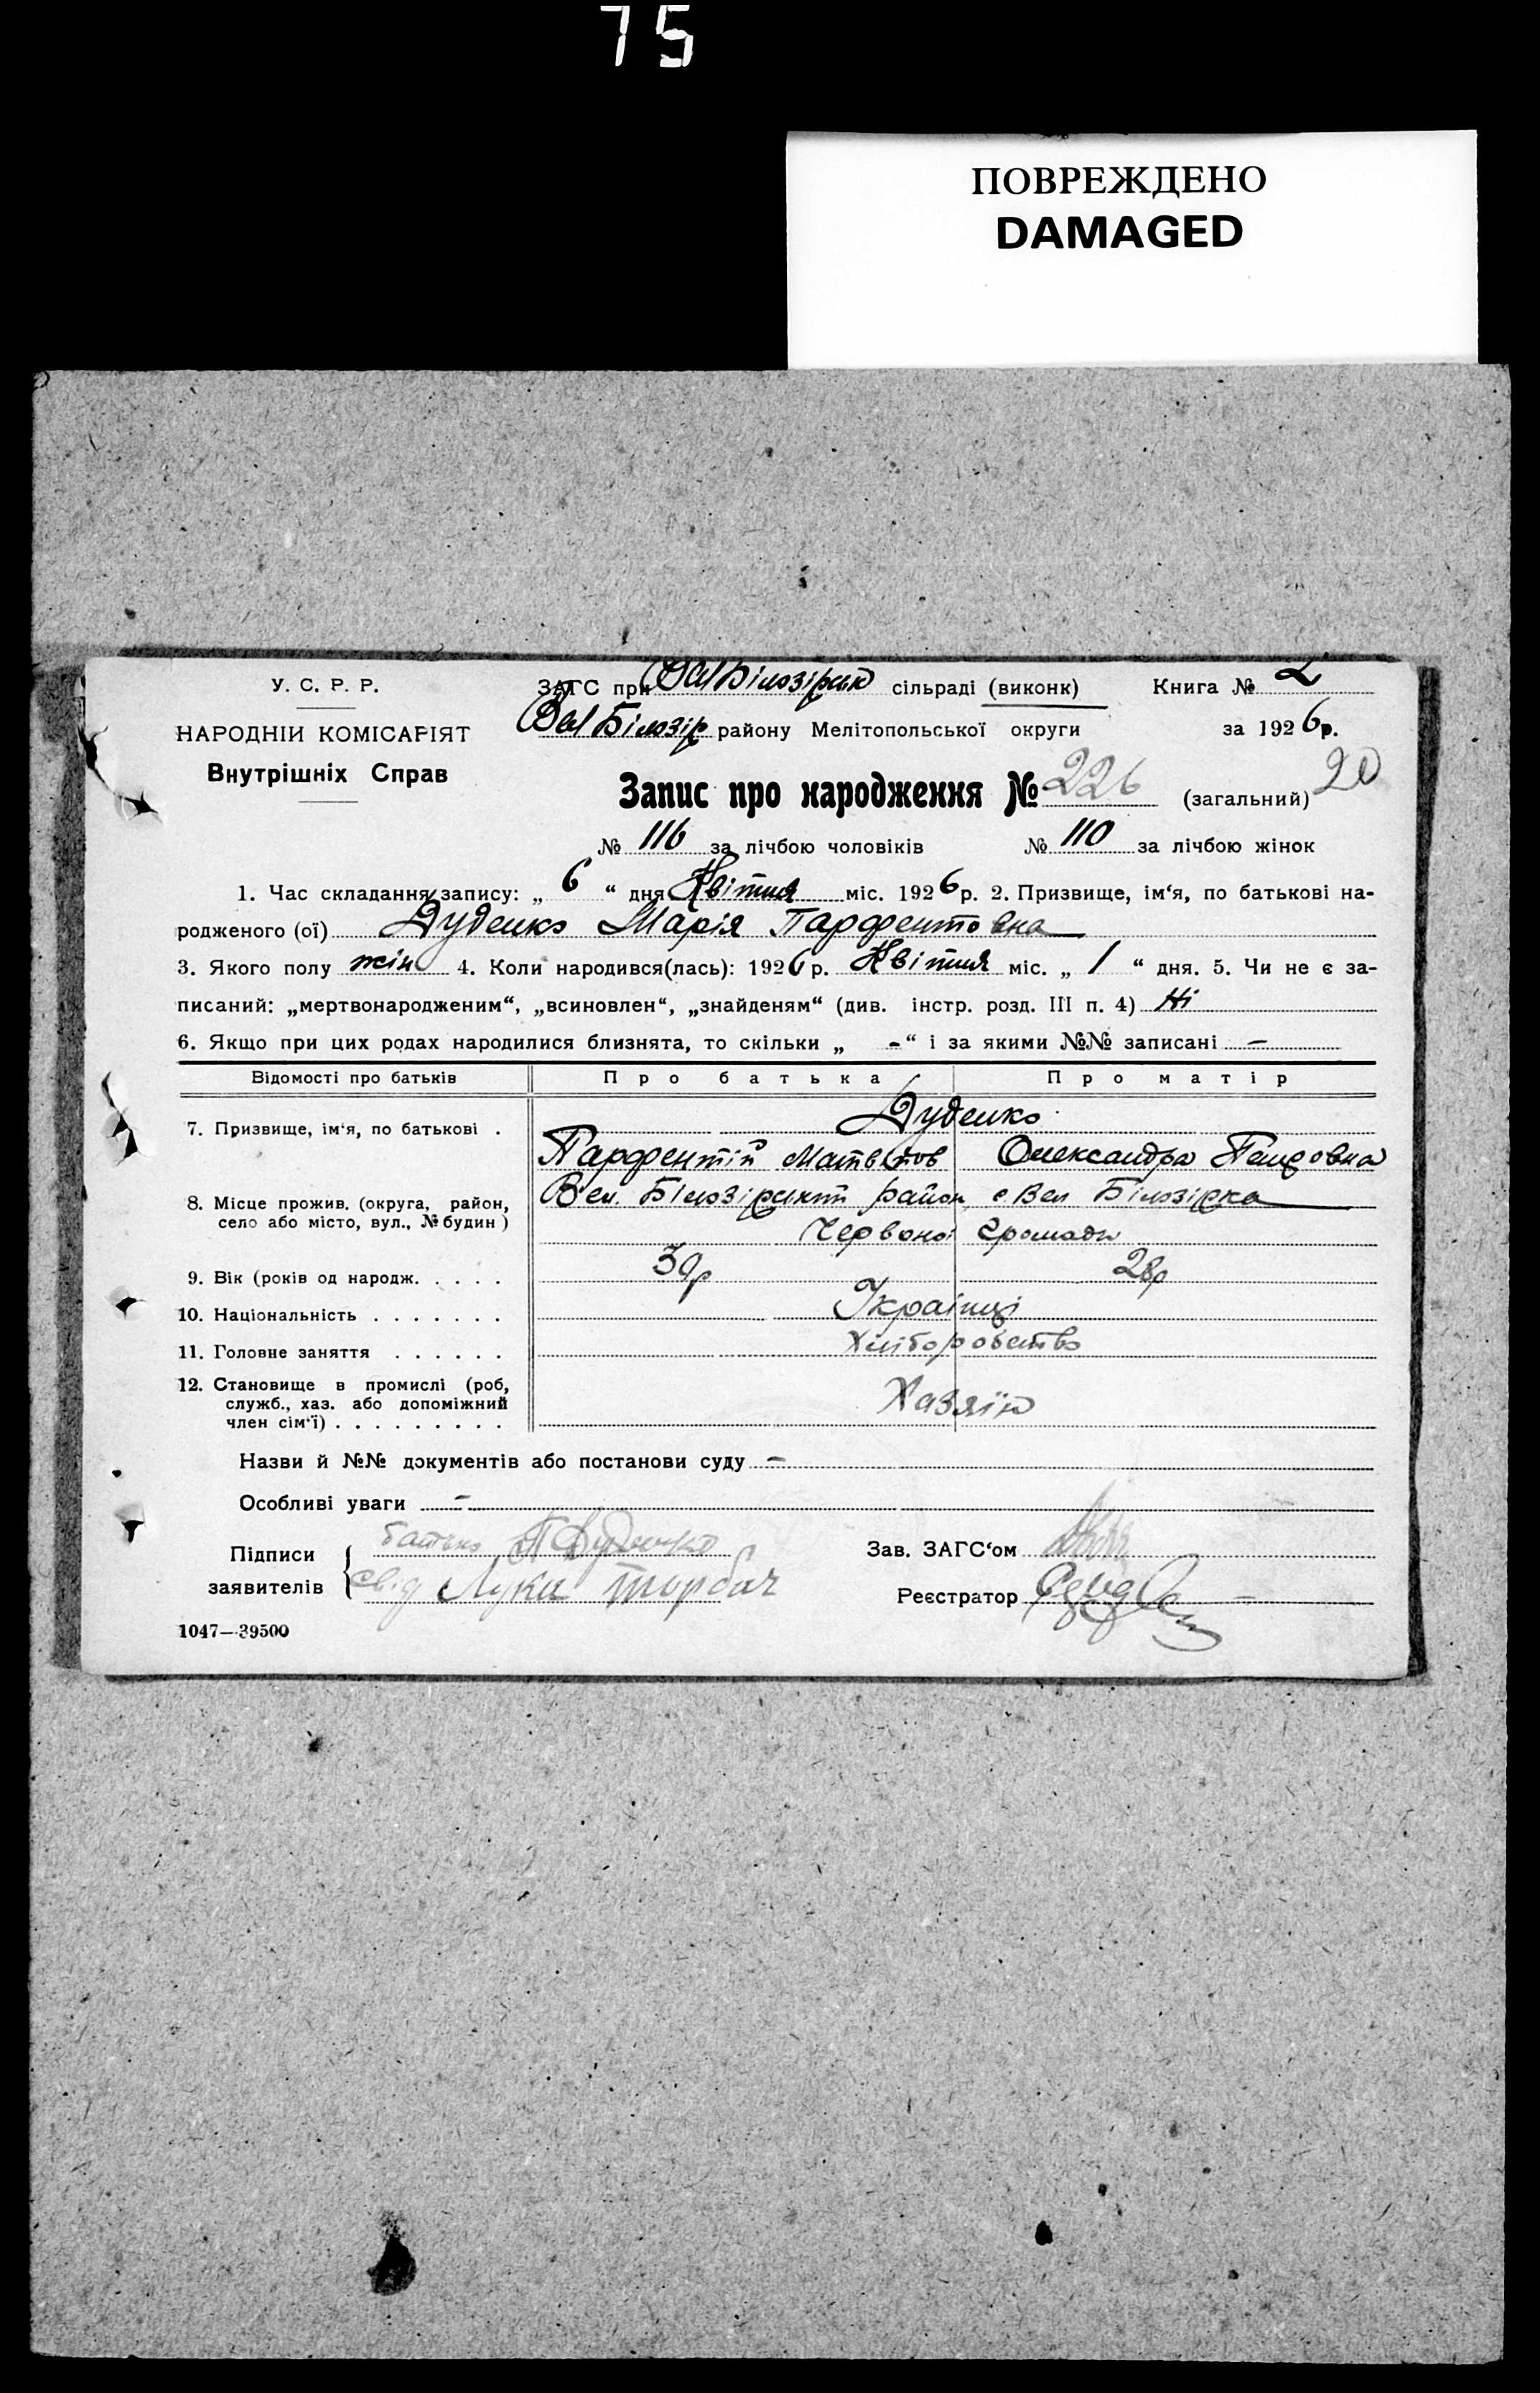 75
ПОВРЕЖДЕНО
DAMAGED
У. С. Р. Р.
ЗАГС при Вел Білозірськ сільраді (виконк) Книга №
НАРОДНІЙ КОМІСАРІЯТ
Вел Білозір району Мелітопольської округи за 1926 р.
Внутрішніх Справ
Запис про народження № 226 (загальний) 20
№ 116 за лічбою чоловіків № 110 за лічбою жінок
1. Час складання запису: „ 6 “ дня Квітня міс. 1926 р. 2. Призвище, ім‘я, по батькові на-
родженого (ої) Дуденко Марія Парфентовна
3. Якого полу жін 4. Коли народився(лась): 1926 р. Квітня міс. „ 1 “ дня. 5. Чи не є за-
писаний: „мертвонародженим“, „всиновлен“, „знайденям“ (див. інстр. розд. III п. 4) Ні
6. Якщо при цих родах народилися близнята, то скільки „ - “ і за якими №№ записані —
Відомості про батьків Про батька Про матір
Дуденко
7. Призвище, ім‘я, по батькові .
Парфентій Олександра
8. Місце прожив. (округа, район, Вел. Білозірський район с. Вел Білозірка
село або місто, вул., № будин)
Червоної громади
9. Вік (років од народж. . . . . 28р
10. Національність . . . . . . . Українці
11. Головне заняття . . . . . . Хліборобство
12. Становище в промислі (роб,
служб., хаз. або допоміжний Хазяїн
член сім‘ї) . . . . . . . . .
Назви й №№ документів або постанови суду —
Особливі уваги —
Підписи батько П Дуденко Зав. ЗАГС‘ом
заявителів свід Лука Торбач Реєстратор
1047—39500